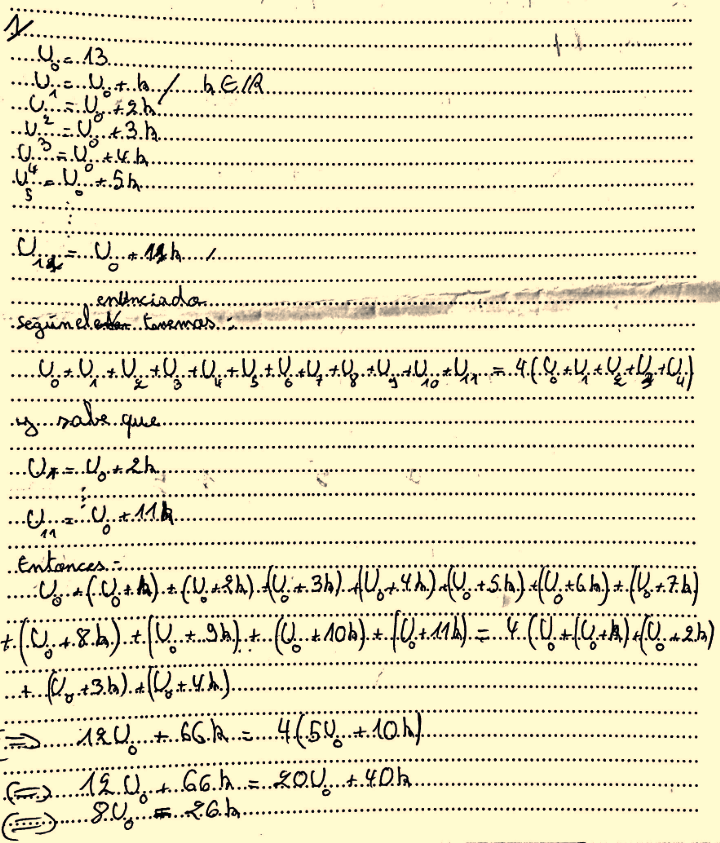 1/
U₀ = 13
U₁ = U₀ + h / h ∈ IR
U₂ = U₀ + 2h
U₃ = U₀ + 3h
U₄ = U₀ + 4h
U₅ = U₀ + 5h
⋮
U₁₁ = U₀ + 11h /
enunciado
según el tenemos :
U₀ + U₁ + U₂ + U₃ + U₄ + U₅ + U₆ + U₇ + U₈ + U₉ + U₁₀ + U₁₁ = 4 (U₀ + U₁ + U₂ + U₃ + U₄)
y sabe que
U₁ = U₀ + 2h
⋮
U₁₁ = U₀ + 11h
Entonces :
U₀ + (U₀ + h) + (U₀ + 2h) + (U₀ + 3h) + (U₀ + 4h) + (U₀ + 5h) + (U₀ + 6h) + (U₀ + 7h)
+ (U₀ + 8h) + (U₀ + 9h) + (U₀ + 10h) + (U₀ + 11h) = 4 (U₀ + (U₀ + h) + (U₀ + 2h)
+ (U₀ + 3h) + (U₀ + 4h)
(⇒) 12U₀ + 66h = 4 (5U₀ + 10h)
(⇔) 12U₀ + 66h = 20U₀ + 40h
(⇔) 8U₀ = 26h